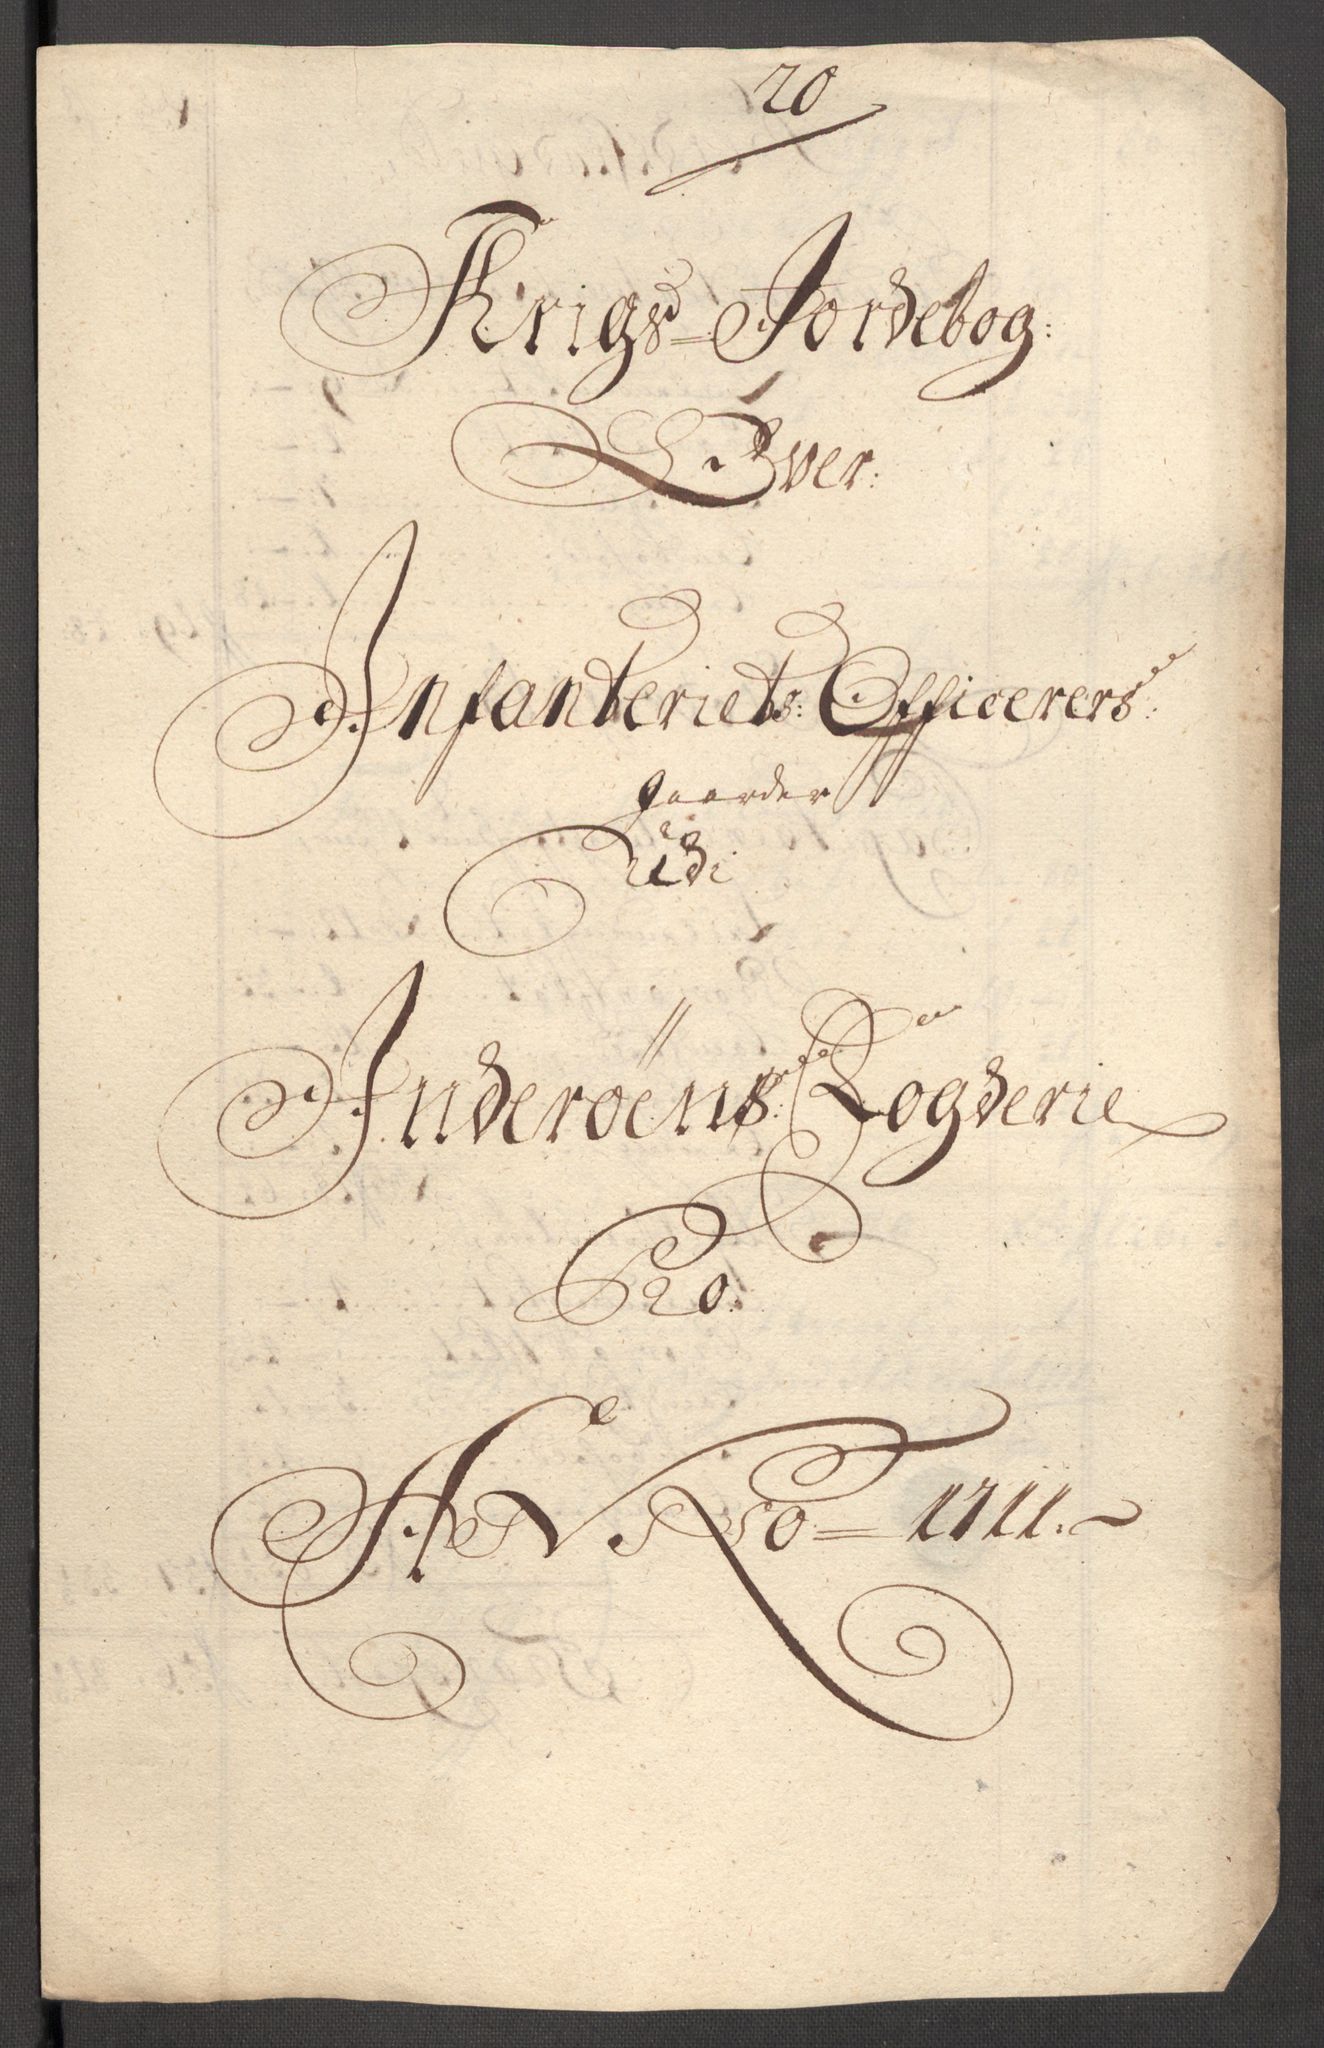 20
Krigs=Jordebog:
Över:
Infanteriets: Officerers:
gaarder
Udi
Inderöens: Fogderie
Pro.
Anno=1711.